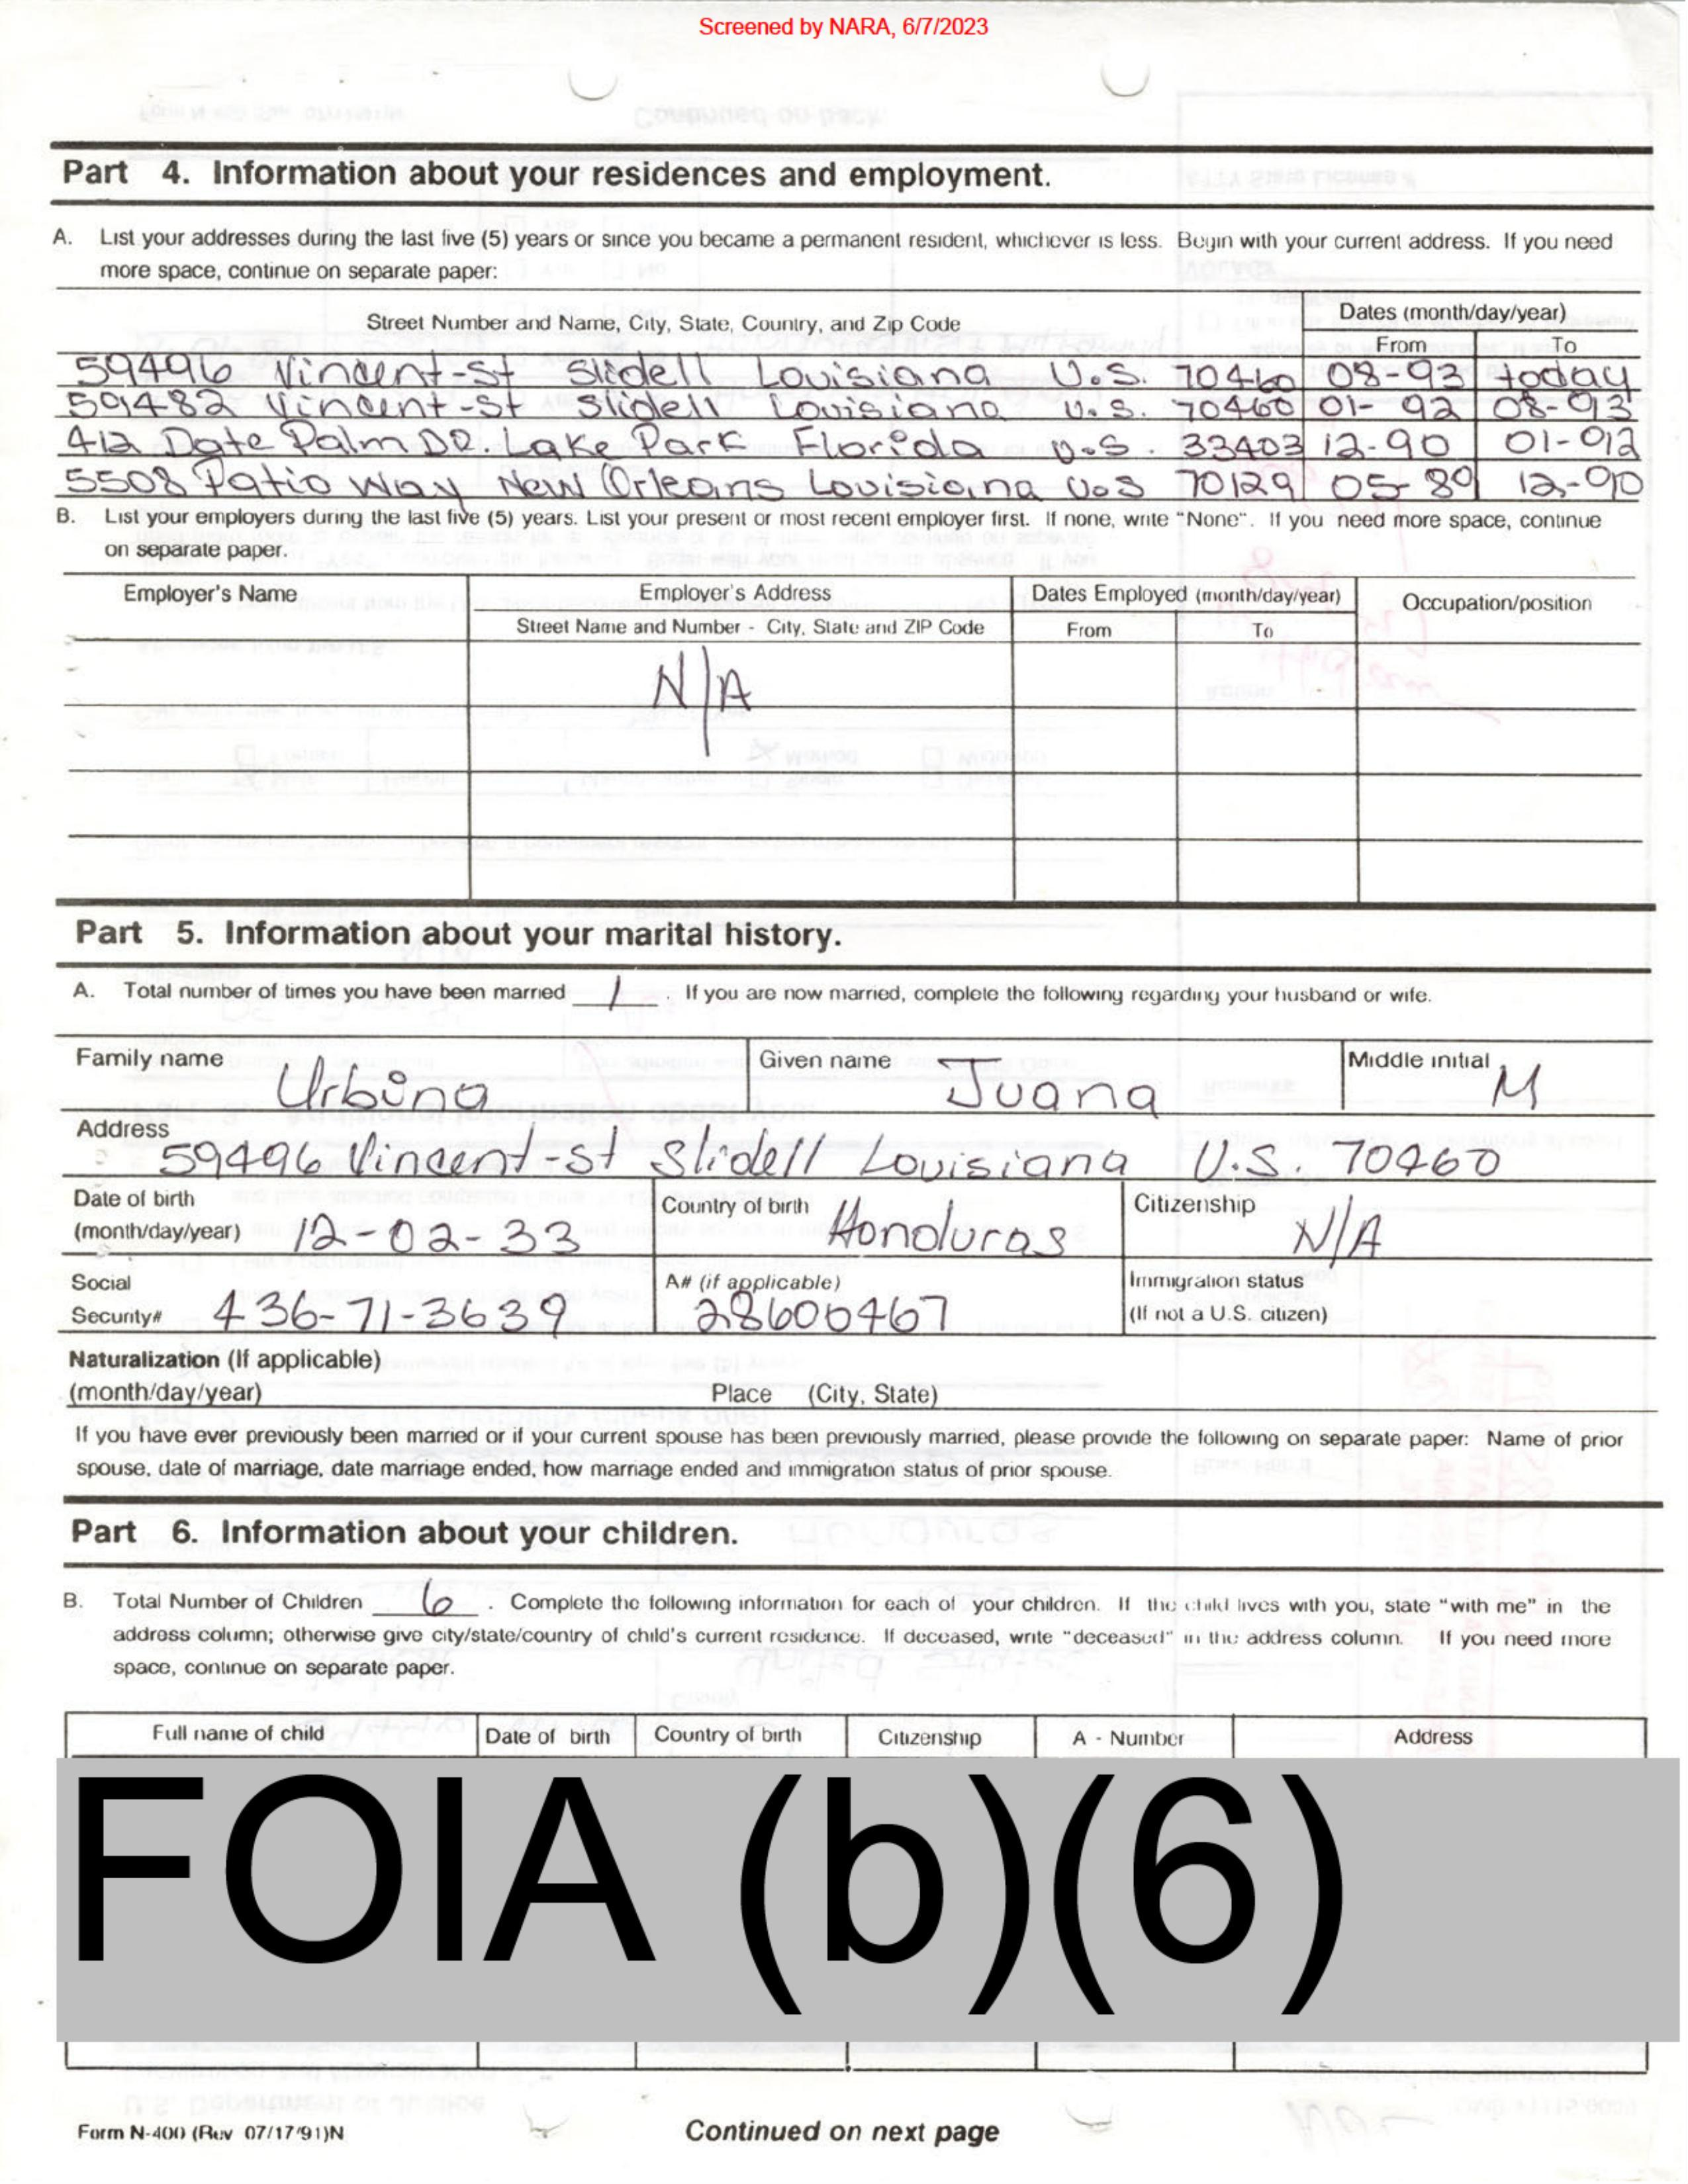 Screened by NARA, 6/7/2023
Part 4. Information about your residences and employment.
A. List your addresses during the last five (5) years or since you became a permanent resident, whichever is less. Begin with your current address. If you need
more space, continue on separate paper:
Street Number and Name, City, State, Country, and Zip Code
Dates (month/day/year)
From To
59496 Vincent-St Slidell Louisiana U.S. 70460 08-93 today
59482 Vincent-St Slidell Louisiana U.S. 70460 01-92 08-93
412 Date Palm DR. Lake Park Florida U.S. 33403 12-90 01-92
5508 Patio Way New Orleans Louisiana U.S 70129 05-89 12-90
B. List your employers during the last five (5) years. List your present or most recent employer first. If none, write "None". If you need more space, continue
on separate paper.
Employer's Name Employer's Address Dates Employed (month/day/year) Occupation/position
Street Name and Number - City, State and ZIP Code From To
N/A
Part 5. Information about your marital history.
A. Total number of times you have been married 1 . If you are now married, complete the following regarding your husband or wife.
Family name Urbina Given name Juana Middle initial M
Address 59496 Vincent-st Slidell Louisiana U.S. 70460
Date of birth
(month/day/year) 12-02-33 Country of birth Honduras Citizenship N/A
Social
Security# 436-71-3639 A# (if applicable) 28600467 Immigration status
(If not a U.S. citizen)
Naturalization (If applicable)
(month/day/year) Place (City, State)
If you have ever previously been married or if your current spouse has been previously married, please provide the following on separate paper: Name of prior
spouse, date of marriage, date marriage ended, how marriage ended and immigration status of prior spouse.
Part 6. Information about your children.
B. Total Number of Children 6 . Complete the following information for each of your children. If the child lives with you, state "with me" in the
address column; otherwise give city/state/country of child's current residence. If deceased, write "deceased" in the address column. If you need more
space, continue on separate paper.
Full name of child Date of birth Country of birth Citizenship A - Number Address
FOIA (b)(6)
Form N-400 (Rev 07/17/91)N Continued on next page